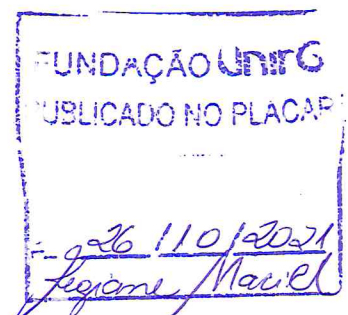 FUNDAÇÃO UnirG
PUBLICADO NO PLACAR
26/10/2021
Maciel